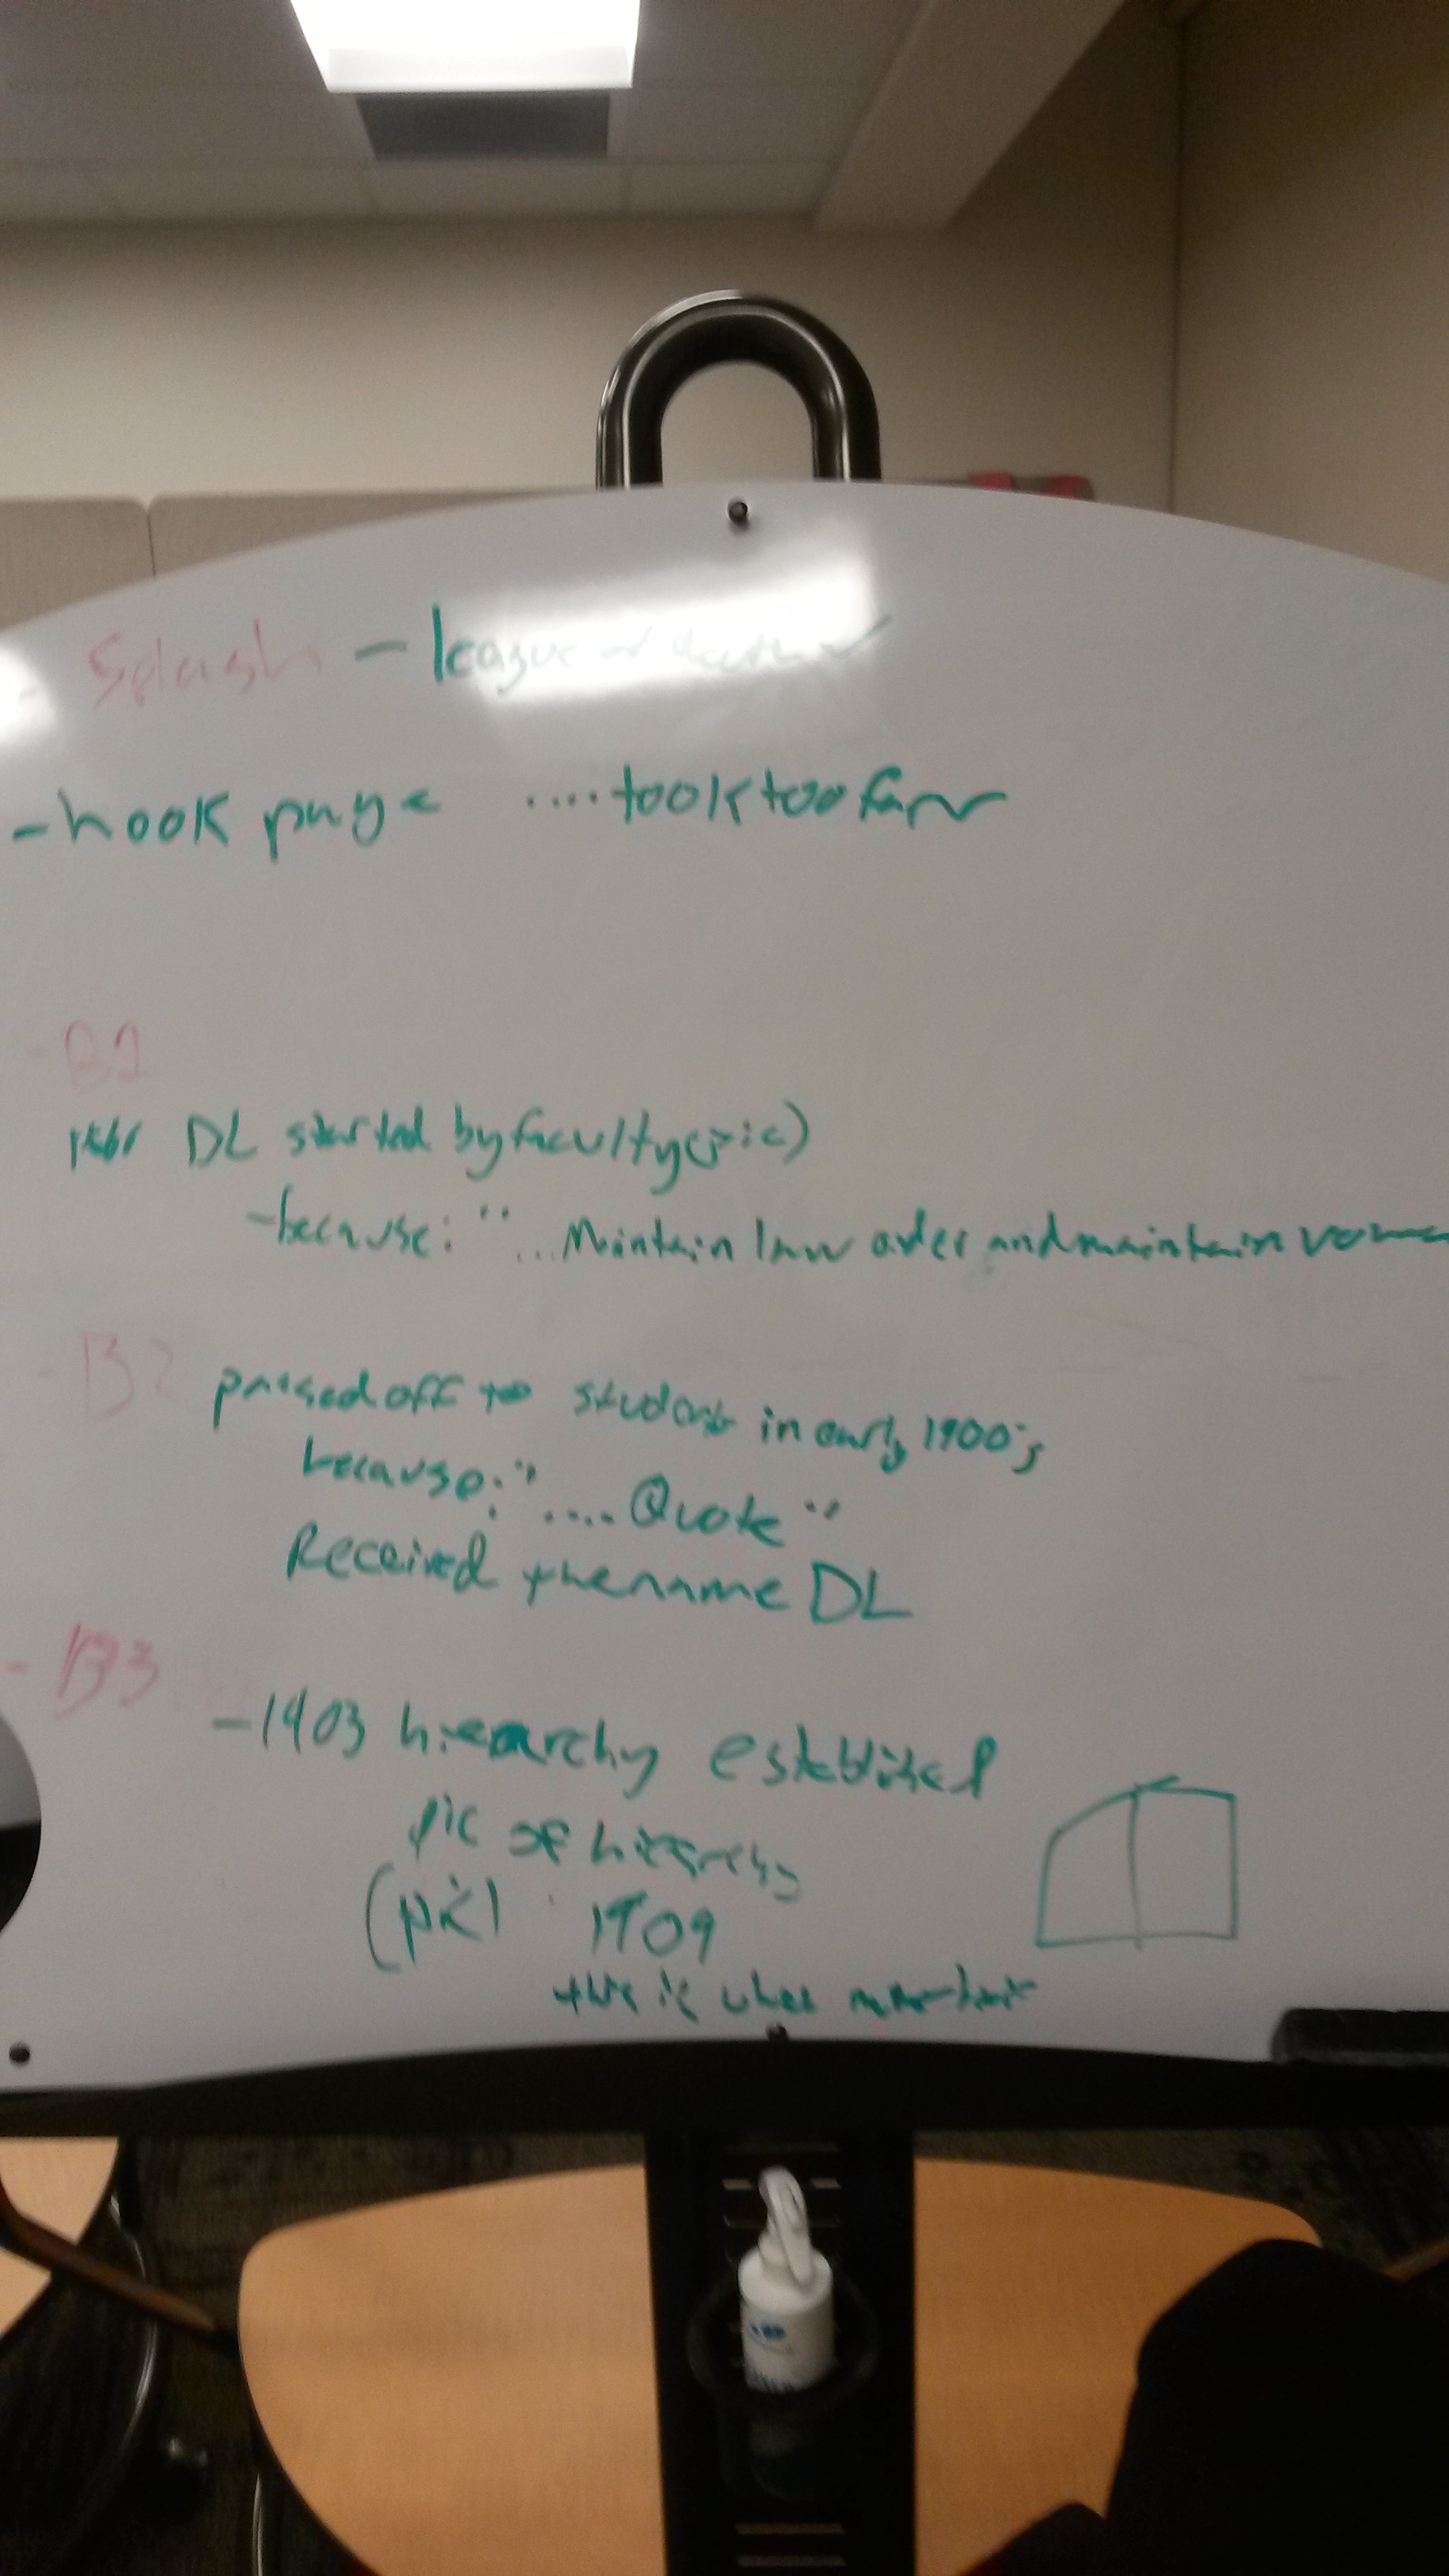 - Splash - league of
- hook page .... took too far
- B1
DL started by faculty (pic)
- because: "...Maintain law order and maintain
- B2 passed off to students in early 1900's
because: ".... Quote"
Received the name DL
- B3
- 1903 hierarchy established
pic of hierarchy
(pic) 1909
this is what